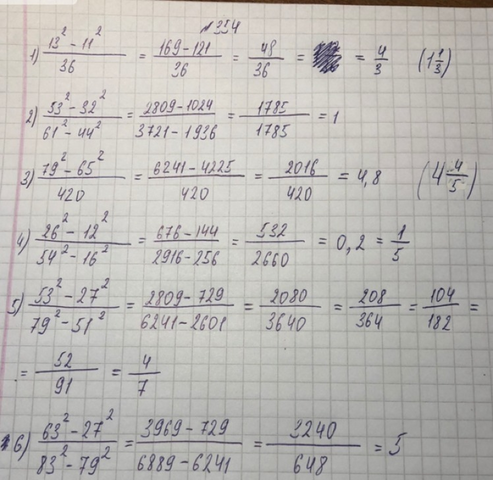 №354
1) (13² - 11²)/36 = (169-121)/36 = 48/36 = = 4/3 (1 1/3)
2) (53² - 32²)/(61² - 44²) = (2809-1024)/(3721-1936) = 1785/1785 = 1
3) (79² - 65²)/420 = (6241-4225)/420 = 2016/420 = 4,8 (4 4/5)
4) (26² - 12²)/(54² - 16²) = (676-144)/(2916-256) = 532/2660 = 0,2 = 1/5
5) (53² - 27²)/(79² - 51²) = (2809-729)/(6241-2601) = 2080/3640 = 208/364 = 104/182 =
= 52/91 = 4/7
6) (63² - 27²)/(83² - 79²) = (3969-729)/(6889-6241) = 3240/648 = 5